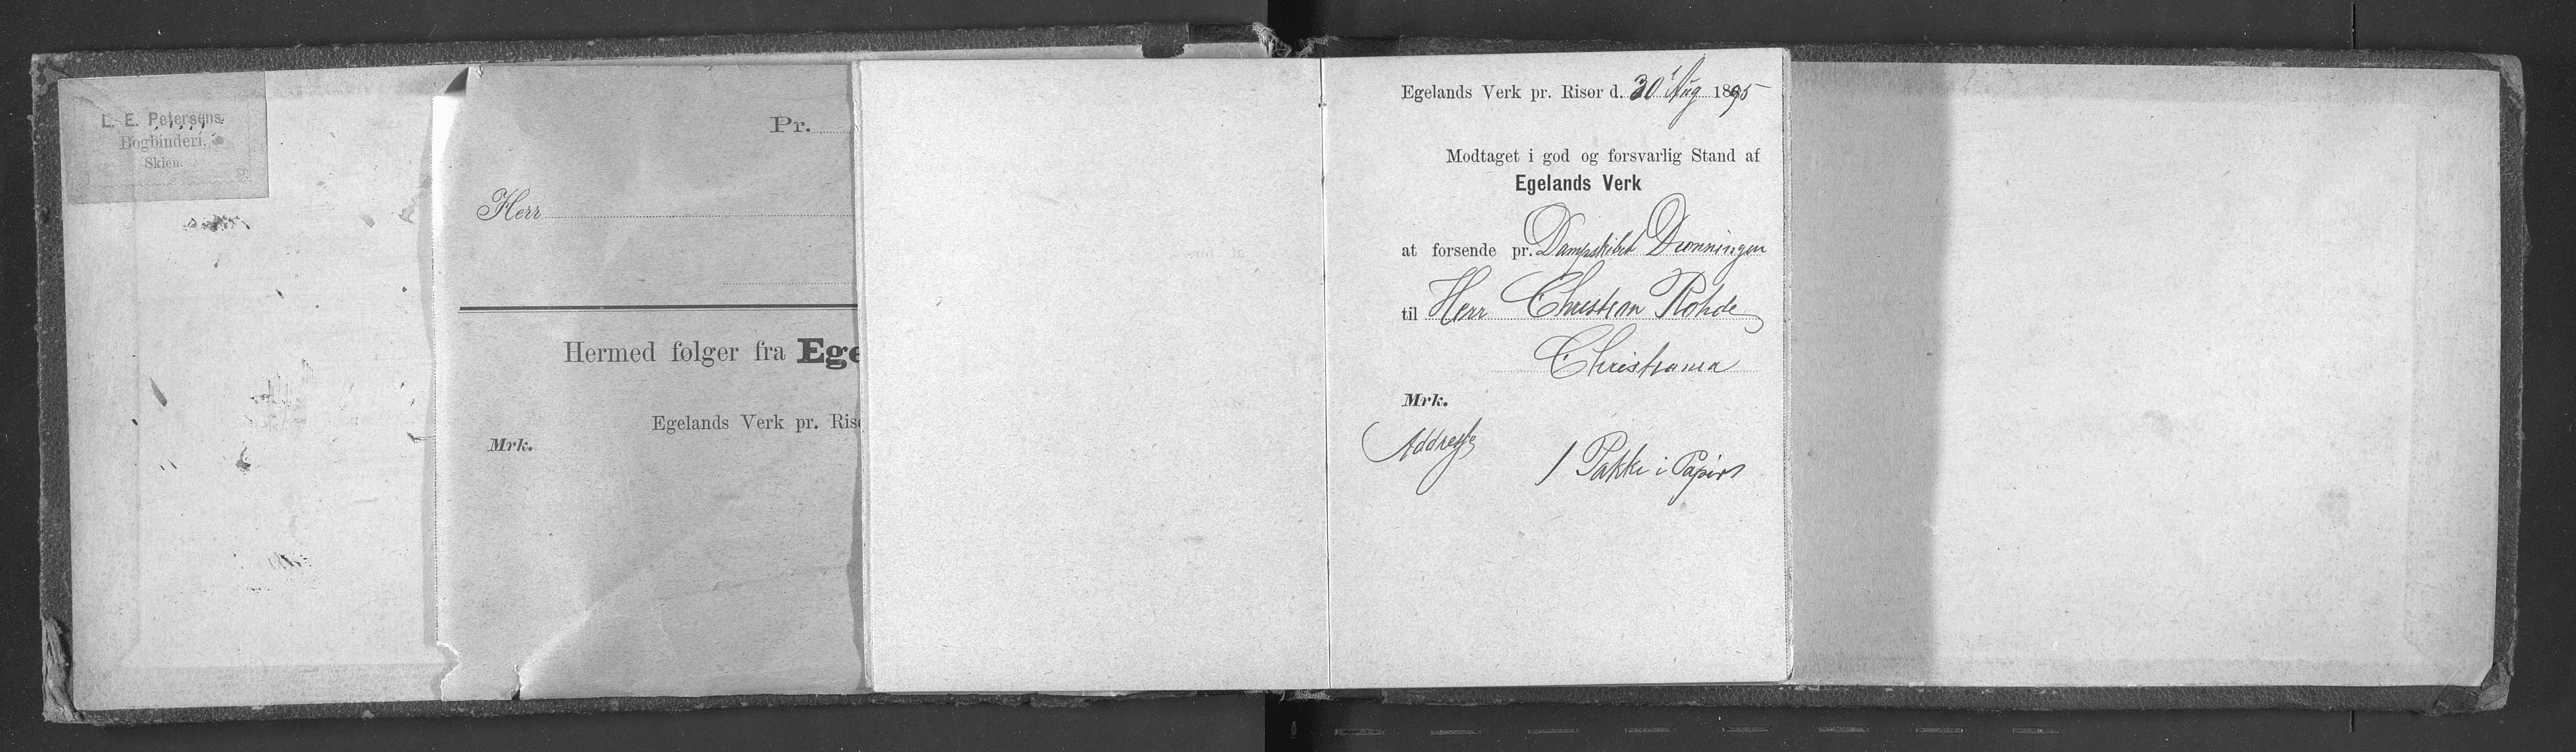 L. E. Petersens
Bogbinderi,
Skien.
Pr.
Herr
Hermed følger fra Ege
Egelands Verk pr. Riso
Mrk.
Egelands Verk pr. Risør d. 30' Aug 1895
Modtaget i god og forsvarlig Stand af
Egelands Verk
at forsende pr. Dampskibet Dronningen
til Herr Christian Rohde
Christiania
Mrk.
Addresse
1 Pakke i Papir